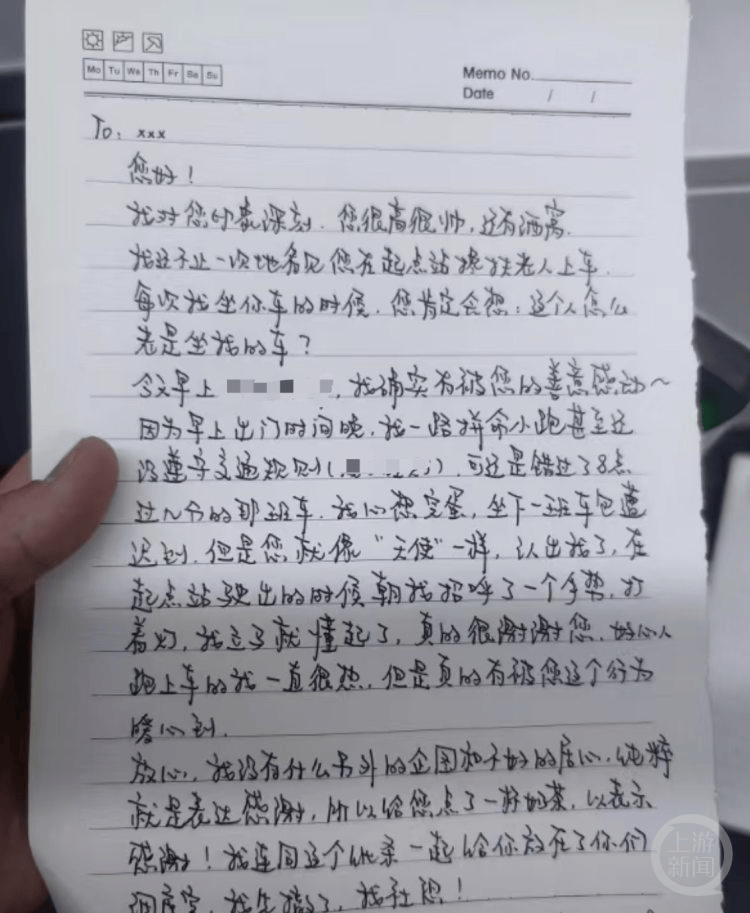 Mo Tu We Th Fr Sa Su
Memo No.
Date / /
To: xxx
您好!
我对您印象深刻. 您很高很帅, 还有酒窝.
我还不止一次地看见您在起点站搀扶老人上车.
每次我坐你车的时候, 您肯定会想: 这个人怎么
老是坐我的车?
今天早上 , 我确实有被您的善意感动~
因为早上出门时间晚, 我一路拼命小跑甚至还
没遵守交通规则( ), 可还是错过了8点
过几分的那班车. 我心想完蛋, 坐下一班车包遭
迟到. 但是您就像“天使”一样, 认出我了, 在
起点站驶出的时候朝我招呼了一个手势, 打
着灯, 我立马就懂起了, 真的很谢谢您, 好心人
跑上车的我一直很热, 但是真的有被您这个行为
暖心到.
放心, 我没有什么另外的企图和不好的居心, 纯粹
就是表达感谢, 所以给您点了一杯奶茶, 以表示
感谢! 我连同这个 一起给你放在了你们
调度室, 我先撤了, 我社恐!
上游
新闻